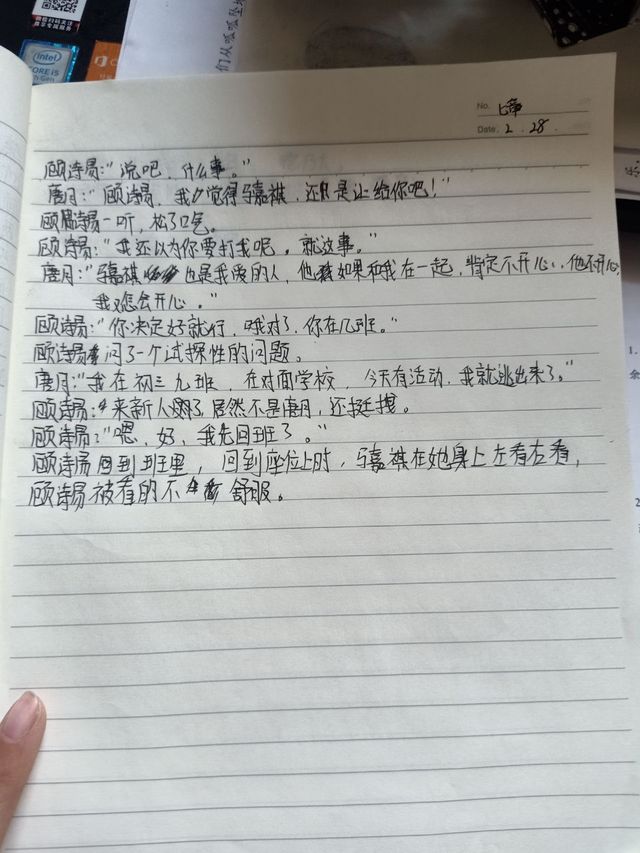 们从呱呱坠
intel
CORE i5
No.
Date. 2. 28.
顾诗易:“说吧,什么事。”
唐月:“顾诗易,我觉得马嘉祺,还是让给你吧!”
顾诗易一听,松了口气。
顾诗易:“我还以为你要打我呢。就这事。”
唐月:“马嘉祺也是我爱的人,他如果和我在一起,肯定不开心,他不开心,
我又怎会开心。”
顾诗易:“你决定好就行,哦对了,你在几班。”
顾诗易问了一个试探性的问题。
唐月:“我在初三九班,在对面学校,今天有活动,我就逃出来了。”
顾诗易:来新人了居然不是唐月,还挺拽。
顾诗易:“嗯,好,我先回班了。”
顾诗易回到班里,回到座位上时,马嘉祺在她身上左看右看,
顾诗易被看的不舒服。